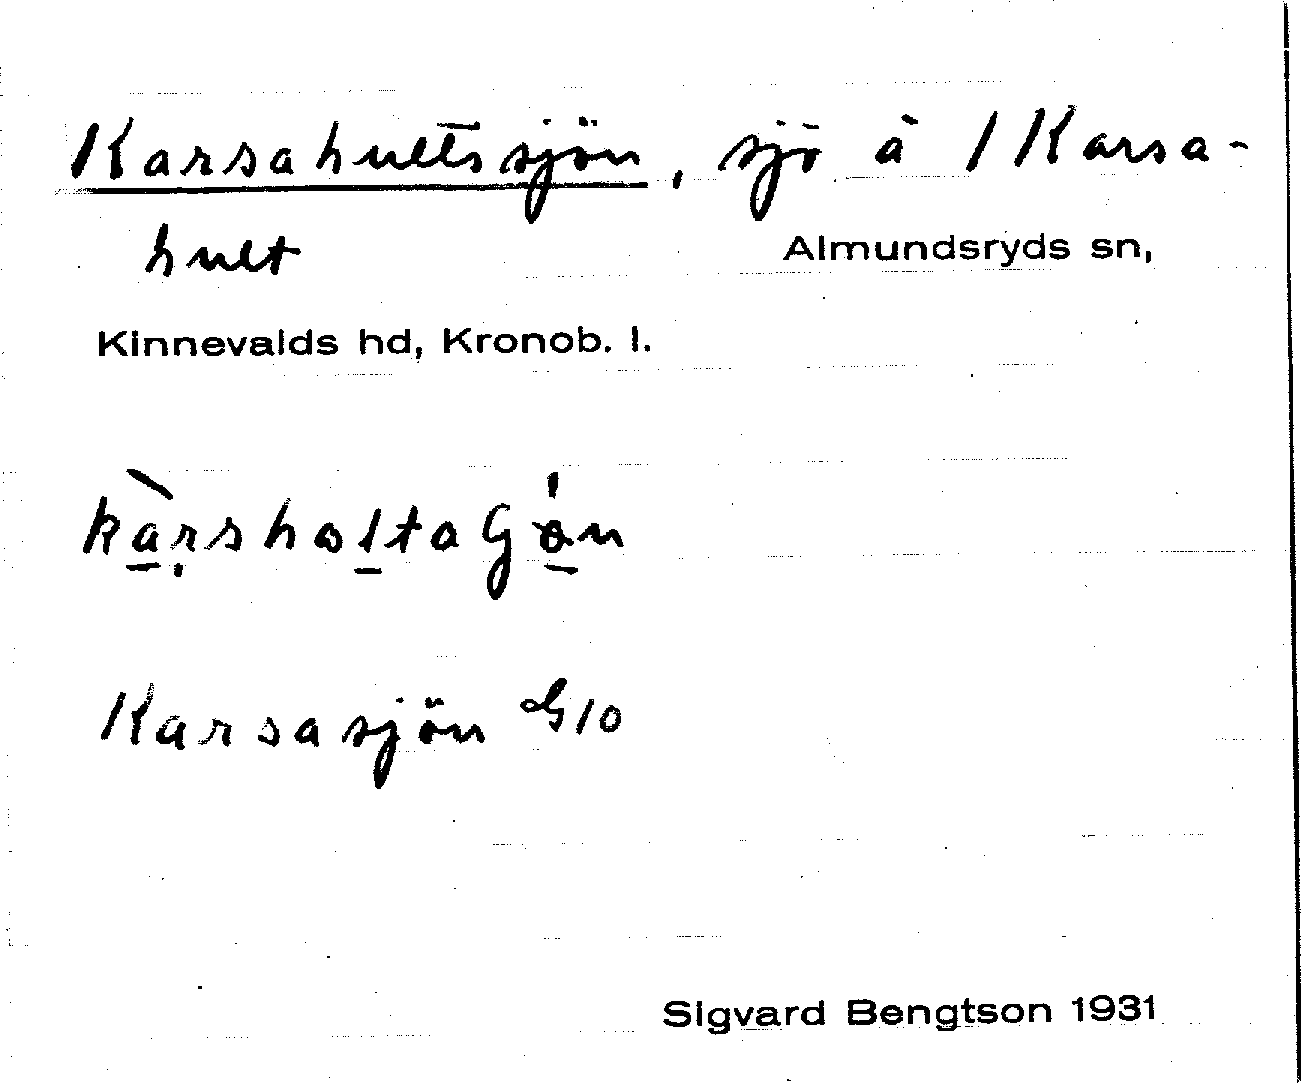 Karsahultssjön, sjö å 1 Karsa-
hult Almundsryds sn,
Kinnevalds hd, Kronob. l.
Karsasjön G10
Sigvard Bengtson 1931